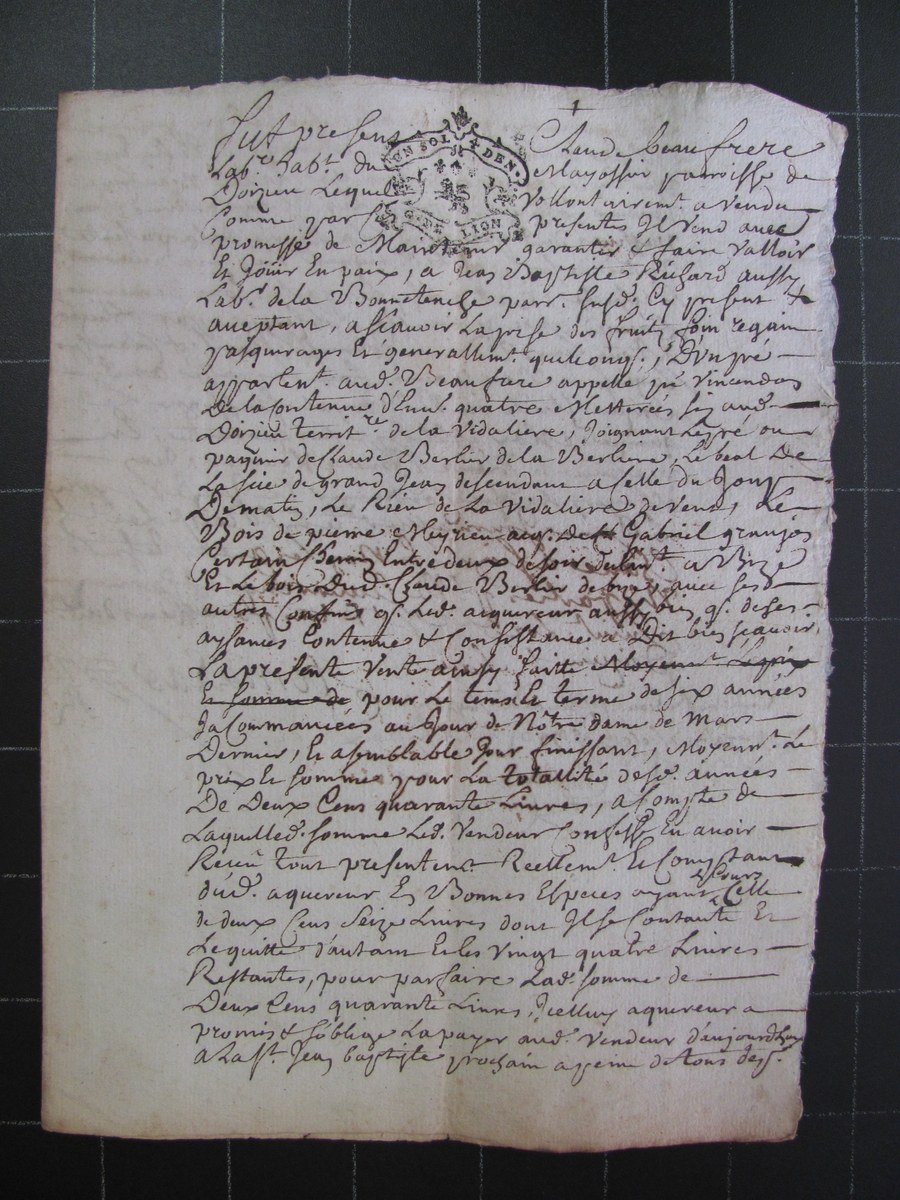 1
Fut present Claude beaufrere
UN SOL 4 DEN.
G. DE LION
Labr. habt. du Mayossin parroisse de
Doizieu Lequel Vollontairemt. a vendu
Comme par ses presentes Il vend avec
promesse de Maintenir garantir & faire Valloir
Et Jouir En paix, a Jean Baptiste Richard aussy
Labr. de la Bonnetanche parr. susd. Cy present &
aceptant, ascavoir La prise des fruits foin regain
pasqurages Et generallemt. quelconqs., D'un pré
appartent. aud. Beaufrere appellé pré
De la Contenue d'Env. quatre Metterées sis aud.
Doizieu territre. de la Vidaliere, Joignant Le pré ou
paquiir de Claude Berlier de la Berliere, Le beal De
La scie de grand Jean descendant a celle du Jong
De matin, Le Rieu de La Vidaliere de Vent, Le
Bois de pierre Meyrieu Gabriel granjon
Certain Chemin Entre deux de soir a Bize
Et Le bois Dud. Claude Berlier de bize, avec ses
autres Confins qs. Led. acquereur aussy bien qs. de ses
aysances Contenue & Consistance a Dit bien scavoir,
La presente Vente ainsy faitte Moyennt. Le prix
Et somme de, pour Le temps Et terme de six années
Ja Commancées au Jour de Notre dame de Mars
Dernier, Et a semblable Jour finissant, Moyent. Le
prix Et somme pour La totallité desd. années
De Deux Cens quarante Livres, a Compte de
Laquelled. somme Led. Vendeur Confesse En avoir
Receu tout presentemt. Reellemt. Et Comptant
dud. aquereur En Bonnes Especes ayant Cours Celle
de deux Cens Seize Livres dont Il se Contante Et
Le quitte d'autant Et les Vingt quatre Livres
Restantes, pour parfaire Lad. somme de
Deux Cens quarante Livres, Icelluy aquereur a
promis & s'oblige La payer aud. Vendeur d'aujourd'huy
a La St. Jean baptiste prochain a peine de tous desp.